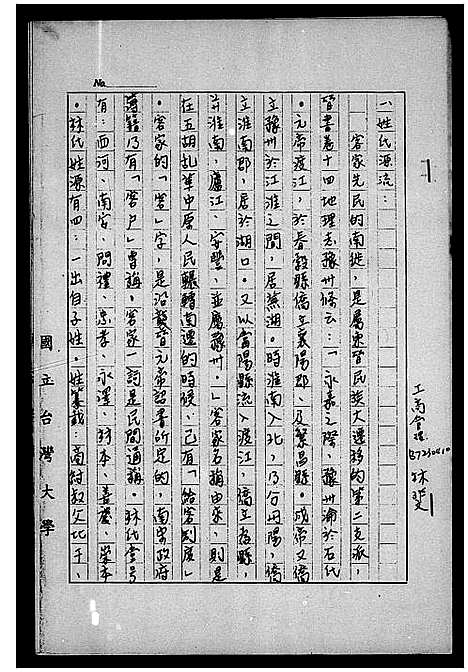 No.
一、姓氏源流：
客家先民的南徙，是屬東晉民族大遷移的第二支派，
晉書卷十四地理志豫州條云：「永嘉之際，豫州淪於石氏
。元帝渡江，於春穀縣僑立襄陽郡，及繁昌縣。成帝又僑
立豫州於江淮之間，居蕪湖。時淮南入北，乃分丹陽，僑
立淮南郡，居於湖口。又以當陽縣流入渡江，僑立為縣，
并淮南，廬江，安豐，並屬豫州。」客家名稱由來，則是
在五胡亂華中原人民輾轉南遷的時候，已有「給客制度」
。客家的「客」字，是沿襲晉元帝詔書所定的，南宋政府
簿籍乃有「客戶」專稱。客家一詞是民間通稱。林氏堂號
有：西河、南安、問禮、忠孝、永澤、林本、善慶、崇本
。林氏姓源有四：一出自子姓。姓纂載：商紂叔父比干，
國立台灣大學
工商管理
林斐